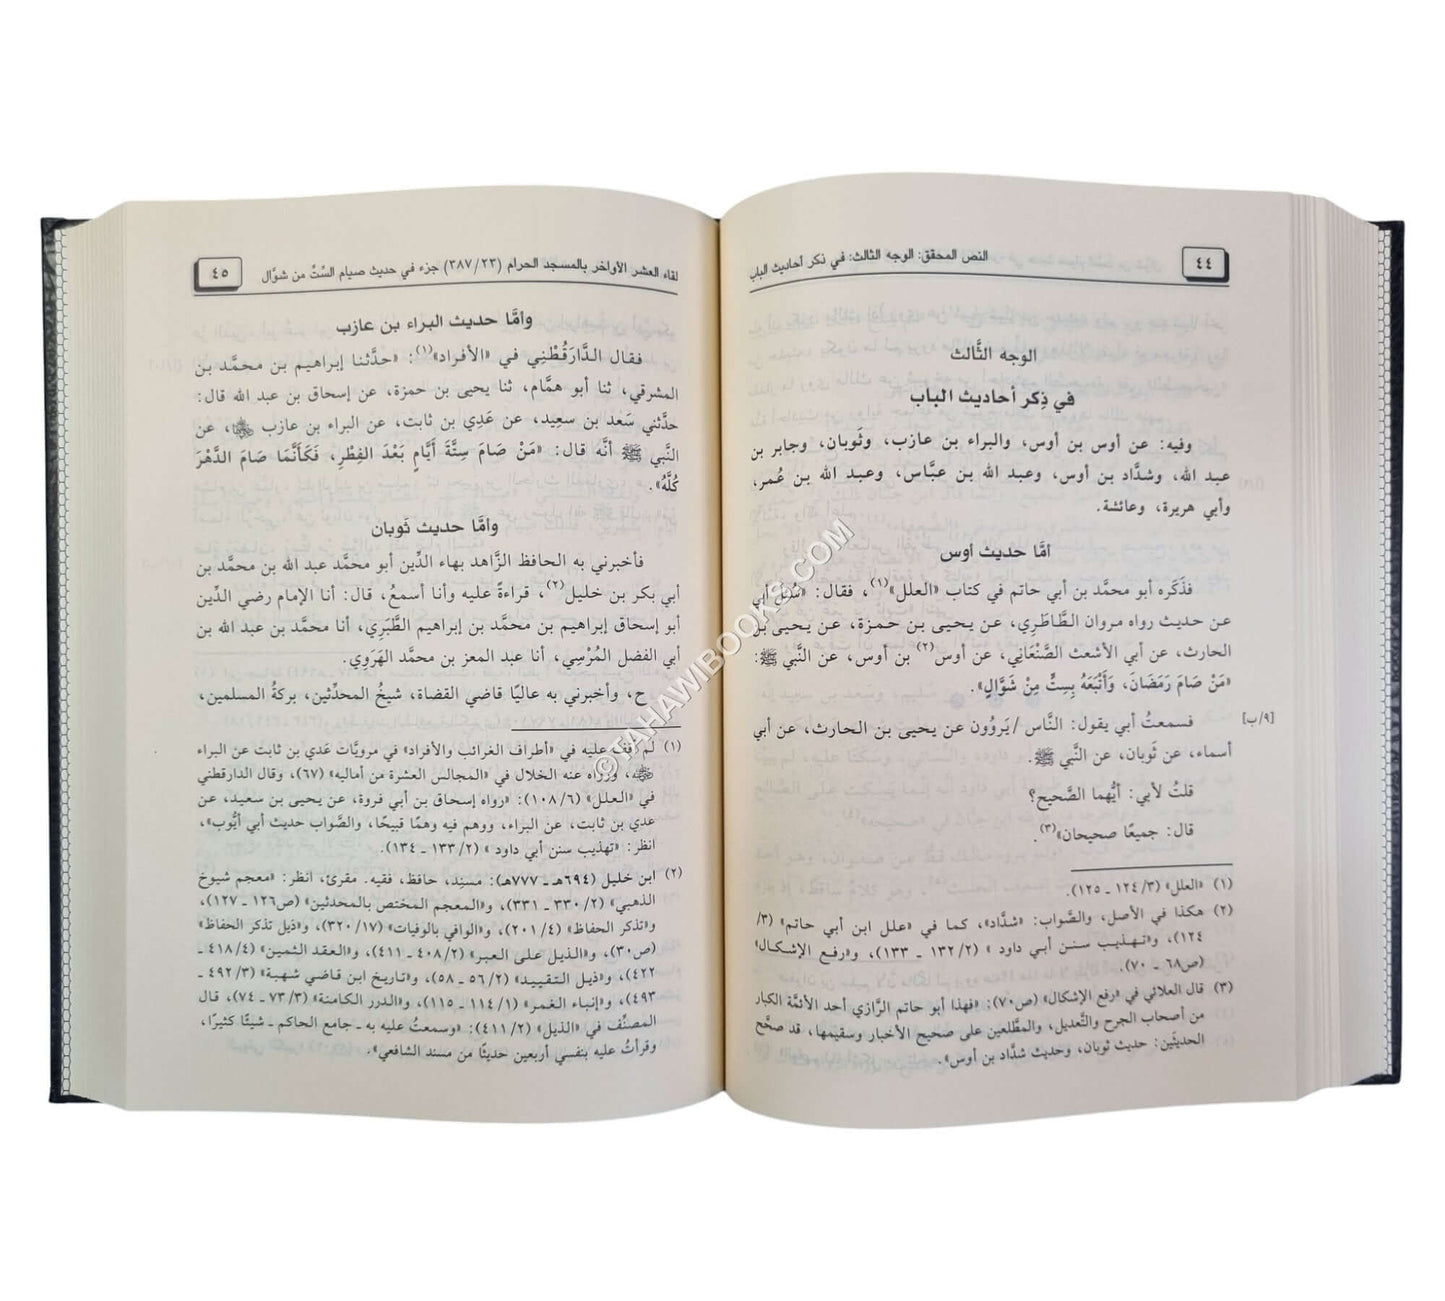 ٤٤
النص المحقق: الوجه الثالث: في ذكر أحاديث الباب
الوجه الثَّالث
في ذِكر أحاديث الباب
وفيه: عن أوس بن أوس، والبراء بن عازب، وثَوبان، وجابر بن
عبد الله، وشدَّاد بن أوس، وعبد الله بن عبَّاس، وعبد الله بن عُمر،
وأبي هريرة، وعائشة.
أمَّا حديث أوس
فذَكَره أبو محمَّد بن أبي حاتم في كتاب «العلل»(١)، فقال: «سُئل أبي
عن حديث رواه مروان الطَّاطَري، عن يحيى بن حمزة، عن يحيى بن
الحارث، عن أبي الأشعث الصَّنْعَاني، عن أوس(٢) بن أوس، عن النَّبي ﷺ:
«مَنْ صَامَ رَمَضَانَ، وَأَتْبَعَهُ بِسِتٍّ مِنْ شَوَّالٍ».
[٩/ب]
فسمعتُ أبي يقول: النَّاس /يَروُون عن يحيى بن الحارث، عن أبي
أسماء، عن ثَوبان، عن النَّبي ﷺ.
قلتُ لأبي: أيُّهما الصَّحيح؟
قال: جميعًا صحيحان»(٣).
(١) «العلل» (٣/ ١٢٤ ـ ١٢٥).
(٢) هكذا في الأصل، والصَّواب: «شدَّاد»، كما في «علل ابن أبي حاتم» (٣/
١٢٤)، و«تهذيب سنن أبي داود » (٢/ ١٣٢ ـ ١٣٣)، و«رفع الإشكال»
(ص٦٨ ـ ٧٠).
(٣) قال العلائي في «رفع الإشكال» (ص٧٠): «فهذا أبو حاتم الرَّازي أحد الأئمَّة الكبار
من أصحاب الجرح والتَّعديل، والمطَّلعين على صحيح الأخبار وسقيمها، قد صحَّح
الحديثَين: حديث ثوبان، وحديث شدَّاد بن أوس».
لقاء العشر الأواخر بالمسجد الحرام (٣٨٧/٢٣) جزء في حديث صيام السِّتِّ من شوَّال
٤٥
وأمَّا حديث البراء بن عازب
فقال الدَّارَقُطْنِي في «الأفراد»(١): «حدَّثنا إبراهيم بن محمَّد بن
المشرقي، ثنا أبو همَّام، ثنا يحيى بن حمزة، عن إسحاق بن عبد الله قال:
حدَّثني سَعد بن سعِيد، عن عَدِي بن ثابت، عن البراء بن عازب ﵁، عن
النَّبي ﷺ أنَّه قال: «مَنْ صَامَ سِتَّةَ أَيَّامٍ بَعْدَ الفِطْرِ، فَكَأَنَّمَا صَامَ الدَّهْرَ
كُلَّهُ».
وأمَّا حديث ثَوبان
فأخبرني به الحافظ الزَّاهد بهاء الدِّين أبو محمَّد عبد الله بن محمَّد بن
أبي بكر بن خليل(٢)، قراءةً عليه وأنا أسمعُ، قال: أنا الإمام رضي الدِّين
أبو إسحاق إبراهيم بن محمَّد بن إبراهيم الطَّبَرِي، أنا محمَّد بن عبد الله بن
أبي الفضل المُرْسِي، أنا عبد المعز بن محمَّد الهَرَوِي.
ح، وأخبرني به عاليًا قاضي القضاة، شيخُ المحدِّثين، بركةُ المسلمين،
(١) لم أقف عليه في «أطراف الغرائب والأفراد» في مرويَّات عَدي بن ثابت عن البراء
﵁، ورواه عنه الخلال في «المجالس العشرة من أماليه» (٦٧)، وقال الدارقطني
في «العلل» (١٠٨/٦): «رواه إسحاق بن أبي فروة، عن يحيى بن سعيد، عن
عدي بن ثابت، عن البراء، ووهم فيه وهمًا قبيحًا، والصَّواب حديث أبي أيُّوب»،
انظر: «تهذيب سنن أبي داود » (٢/ ١٣٣ ـ ١٣٤).
(٢) ابن خليل (٦٩٤هـ ـ ٧٧٧هـ): مسنِد، حافظ، فقيه. مقرئ، انظر: «معجم شيوخ
الذهبي» (٢/ ٣٣٠ ـ ٣٣١)، و«المعجم المختص بالمحدثين» (ص١٢٦ ـ ١٢٧)،
و«تذكر الحفاظ» (٢٠١/٤)، و«الوافي بالوفيات» (٣٢٠/١٧)، و«ذيل تذكر الحفاظ»
(ص٣٠)، و«الذيل على العبر» (٢/ ٤٠٨ ـ ٤١١)، و«العقد الثمين» (٤/ ٤١٨ ـ
٤٢٢)، و«ذيل التقييد» (٢/ ٥٦ ـ ٥٨)، و«تاريخ ابن قاضي شهبة» (٣/ ٤٩٢ ـ
٤٩٣)، و«إنباء الغمر» (١/ ١١٤ ـ ١١٥)، و«الدرر الكامنة» (٣/ ٧٣ ـ ٧٤)، قال
المصنِّف في «الذيل» (٤١١/٢): «وسمعتُ عليه به ـ جامع الحاكم ـ شيئًا كثيرًا،
وقرأتُ عليه بنفسي أربعين حديثًا من مسند الشافعي».
©TAHAWIBOOKS.COM